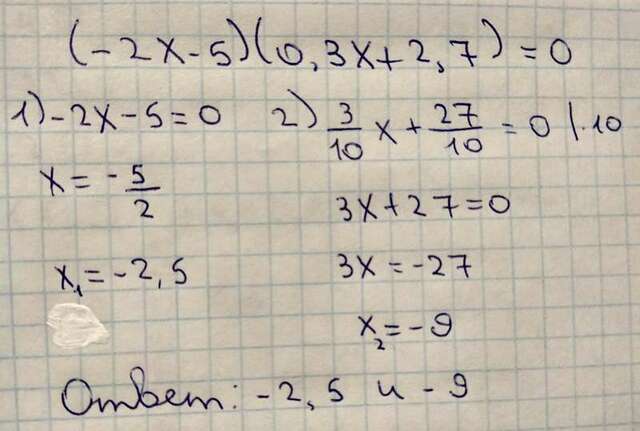 (-2x-5)(0,3x+2,7)=0
1) -2x-5=0
x=-5/2
x₁=-2,5
2) 3/10 x + 27/10 = 0 |·10
3x+27=0
3x=-27
x₂=-9
Ответ: -2,5 и -9